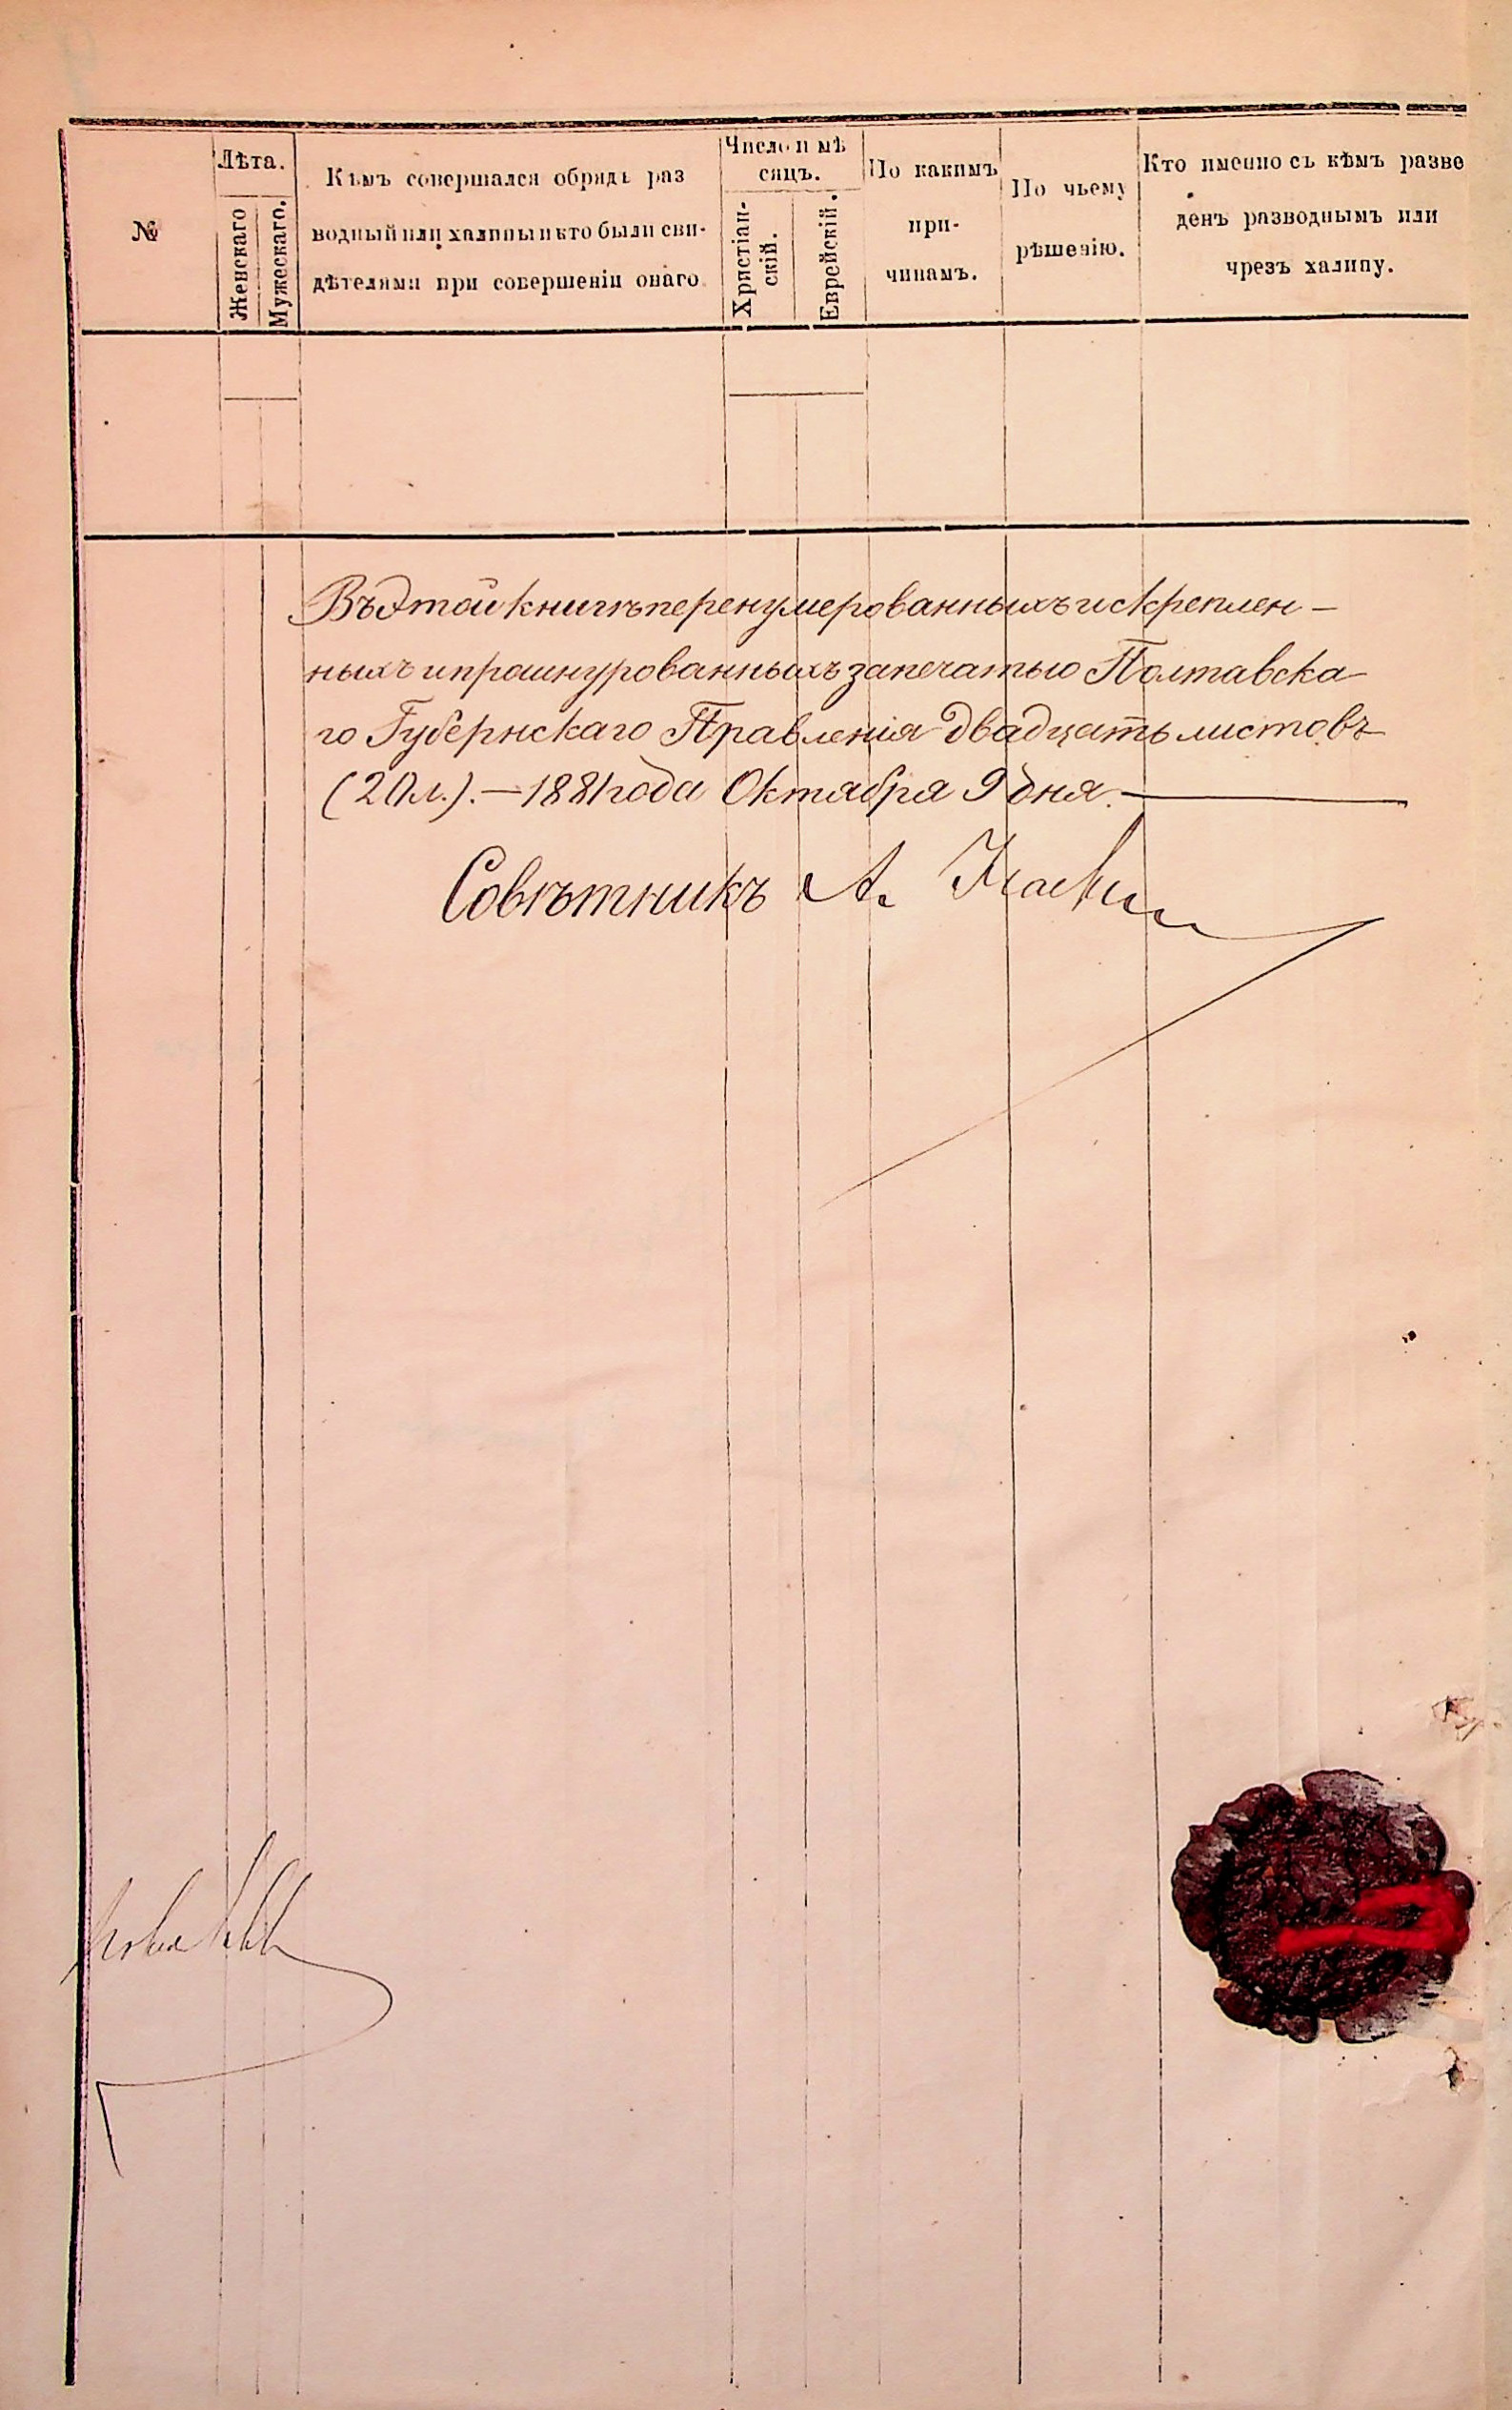 №
Лѣта.
Женскаго
Мужескаго.
Кѣмъ совершался обрядъ раз
водный или халипы и кто были сви-
дѣтелями при совершеніи онаго.
Число и мѣ
сяцъ.
Христіан-
скій.
Еврейскій.
По какимъ
при-
чинамъ.
По чьему
рѣшенію.
Кто именно съ кѣмъ разве
денъ разводнымъ или
чрезъ халипу.
Въ этой книгѣ перенумерованныхъ и скреплен-
ныхъ и прошнурованныхъ за печатью Полтавска-
го Губернскаго Правленія двадцать листовъ
(20 л.). — 1881 года Октября 9 дня. —
Совѣтникъ А.